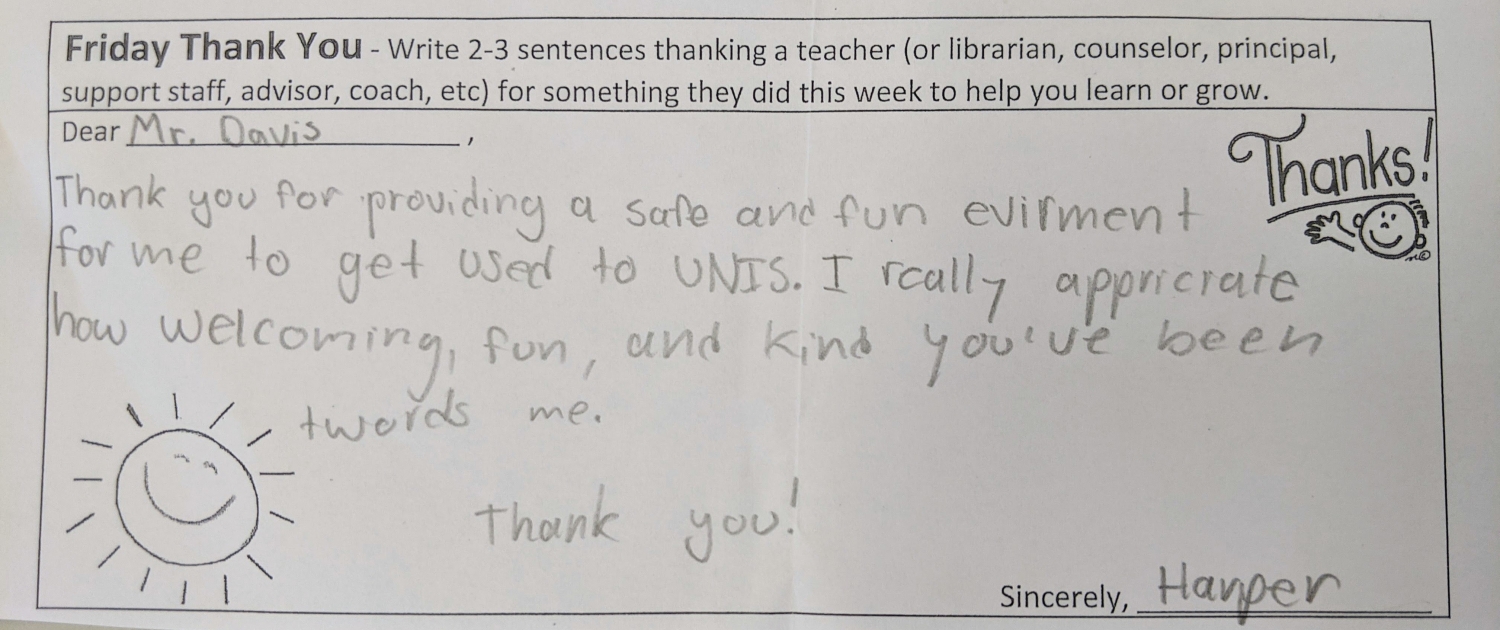 Friday Thank You - Write 2-3 sentences thanking a teacher (or librarian, counselor, principal,
support staff, advisor, coach, etc) for something they did this week to help you learn or grow.
Dear Mr. Davis,
Thanks!
Thank you for providing a safe and fun evirment
for me to get used to UNIS. I really appricrate
how welcoming, fun, and kind you've been
twords me.
Thank you!
Sincerely, Harper